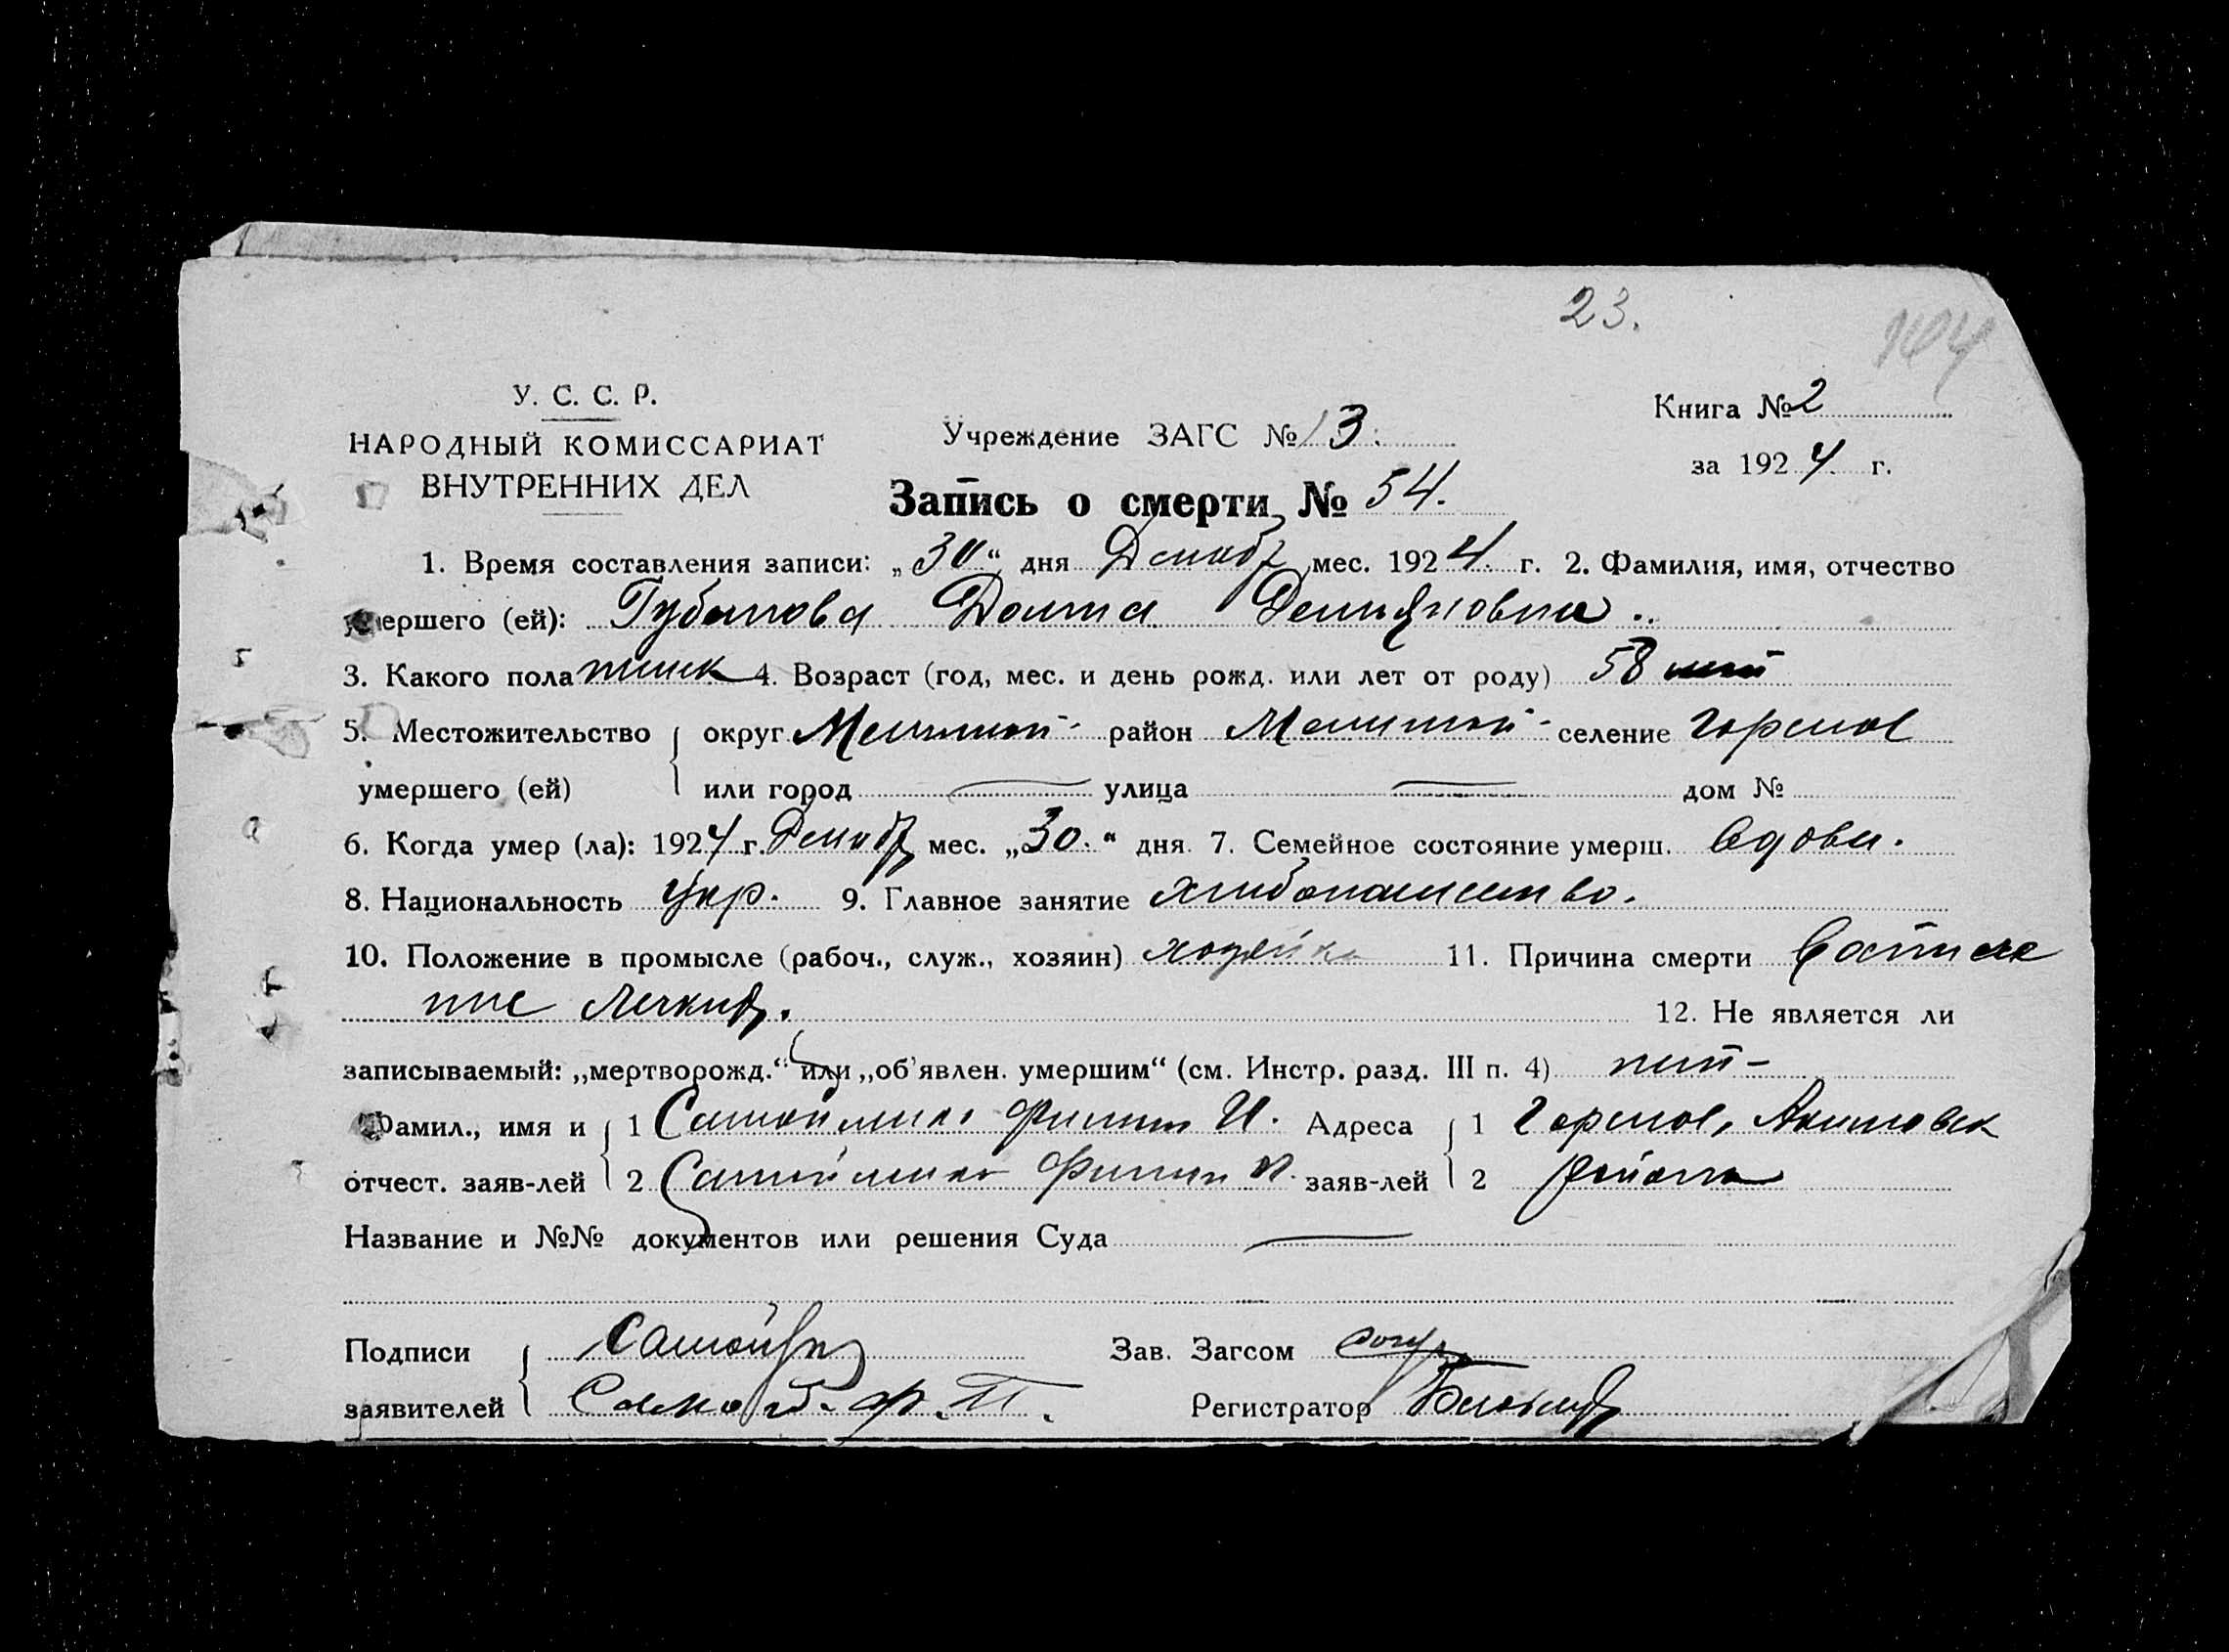 23.
У. С. С. Р.
Книга № 2
НАРОДНЫЙ КОМИССАРИАТ
Учреждение ЗАГС № 13.
ВНУТРЕННИХ ДЕЛ
за 1924 г.
Запись о смерти № 54.
1. Время составления записи: „30“ дня Декабр мес. 1924 г. 2. Фамилия, имя, отчество
умершего (ей): Губанова Домна Демьяновна
3. Какого пола женск 4. Возраст (год, мес. и день рожд. или лет от роду) 58 лет
5. Местожительство округ Мелитоп район Мелитоп селение Горелое
умершего (ей) или город — улица — дом №
6. Когда умер (ла): 1924 г. Декабр мес. „30.“ дня 7. Семейное состояние умерш. вдова.
8. Национальность Укр. 9. Главное занятие хлебопашество.
10. Положение в промысле (рабоч., служ., хозяин) хозяйка 11. Причина смерти Воспале
ние Легких.
12. Не является ли
записываемый: „мертворожд.“ или „об'явлен. умершим“ (см. Инстр. разд. III п. 4) нет -
Фамил., имя и 1 Самойленко Филип И. Адреса 1 Горелое, Акимовск
отчест. заяв-лей 2 Самойленко Филип П. заяв-лей 2 района
Название и №№ документов или решения Суда —
Подписи Зав. Загсом
заявителей Самойл. Ф. П. Регистратор